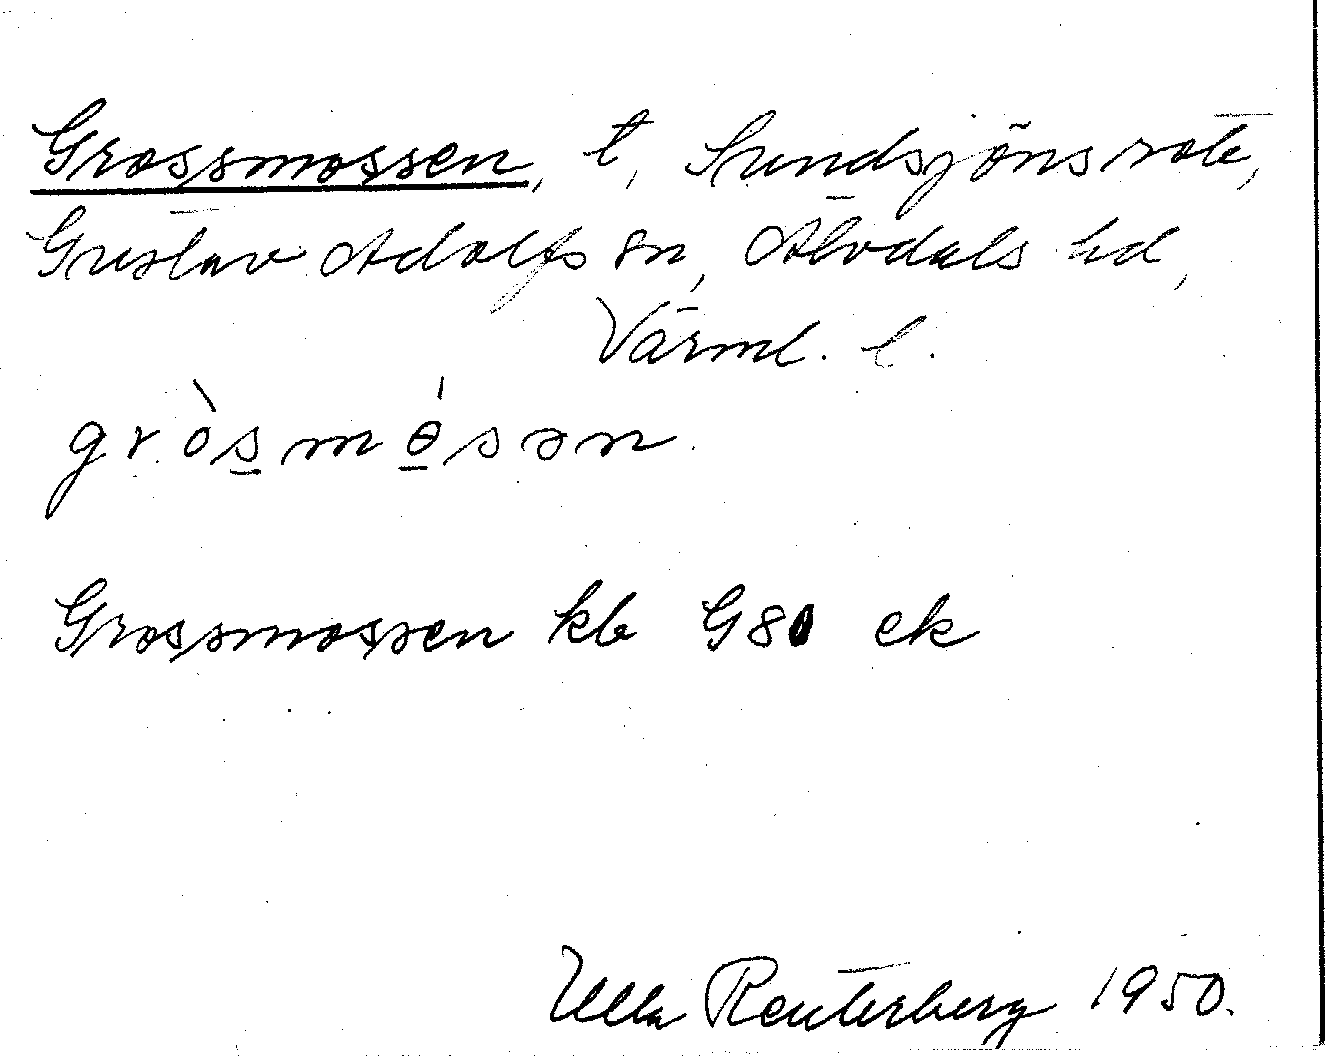 Grossmossen, t, Sundsjöns rote,
Gustav Adolfs sn, Älvdals hd,
Värml. l.
gròs̲mɵ̲́sən.
Grossmossen kb G80 ek
Ulla Reuterberg 1950.